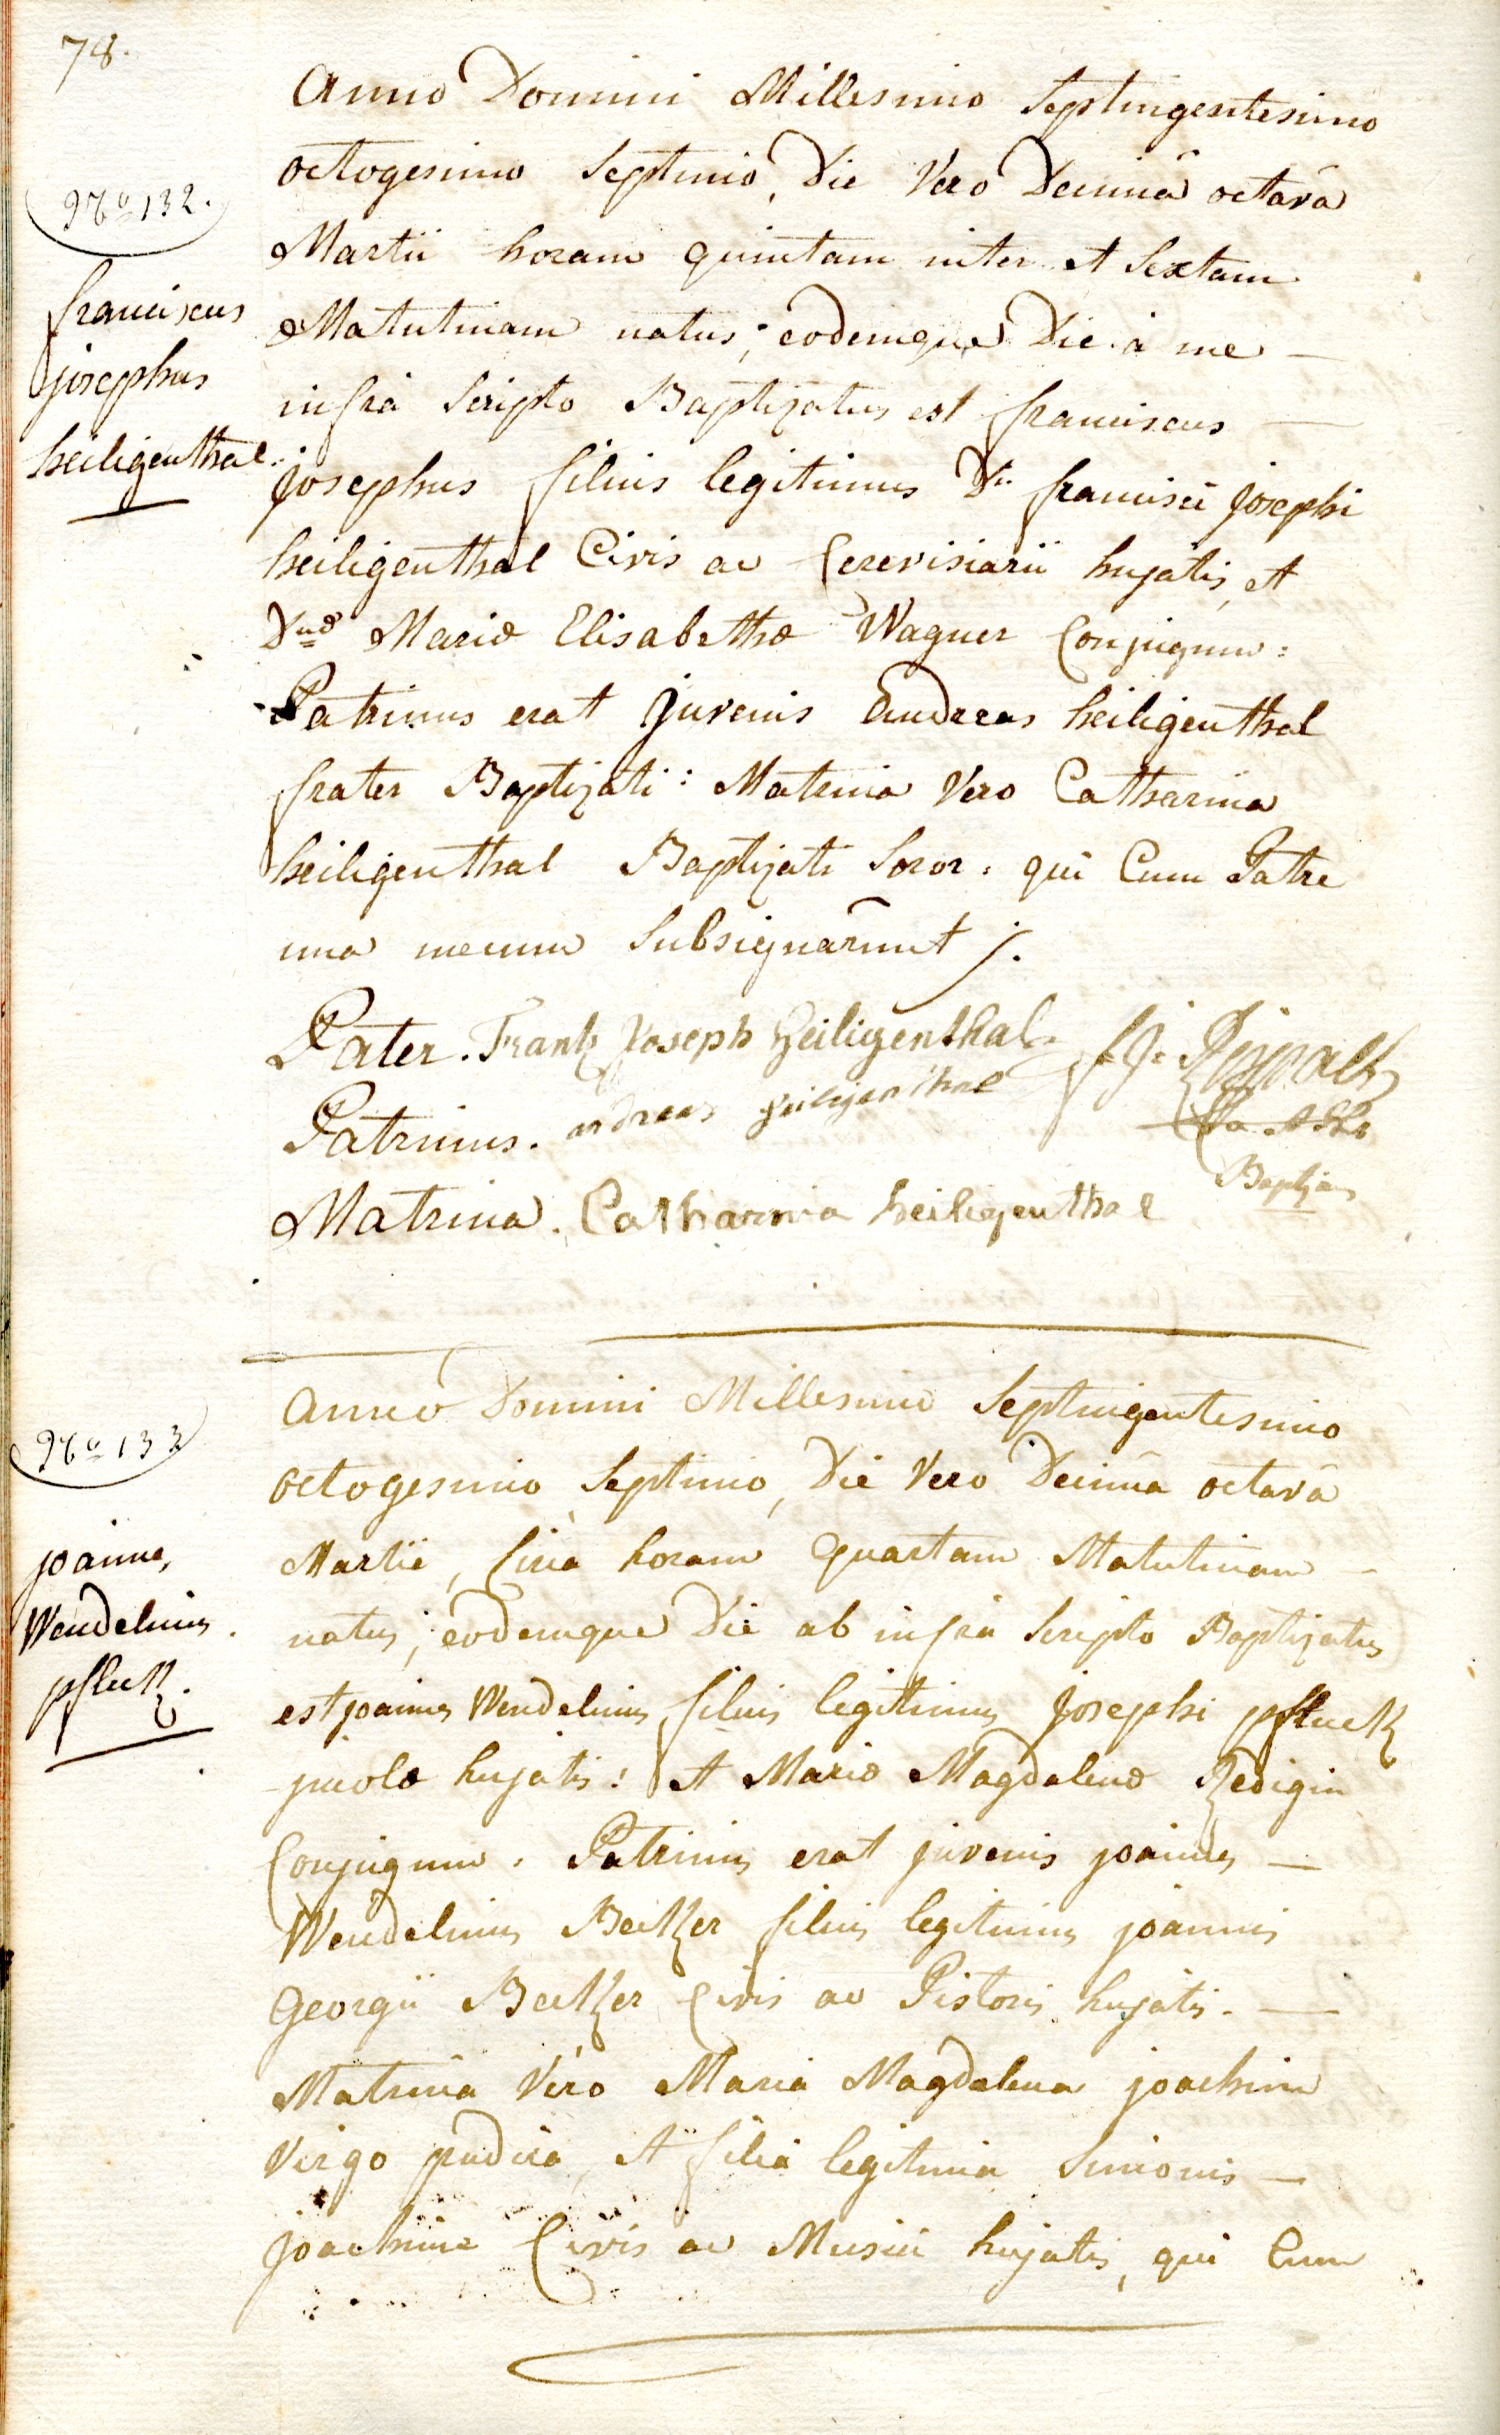 78.
Anno Domini Millesimo Septingentesimo
octogesimo Septimo, Die Vero Decimâ octavâ
Nro 132.
Martii horam quintam inter et Sextam
franciscus
Matutinam natus; eodemque Die à me —
josephus
infrà Scripto Baptizatus est franciscus —
heiligenthal.
josephus filius legitimus Di. francisci josephi
heiligenthal Civis ac Cerevisiarii hujatis, et
Dnæ Mariæ Elisabethæ Wagner Conjugum:
Patrinus erat juvenis Andreas heiligenthal
frater Baptizati: Matrina Vero Catharina
heiligenthal Baptizati Soror: qui Cum Patre
una mecum Subsignarunt j.
Pater. Frantz Joseph Heiligenthal.
Patrinus. andreas heiligenthal
Baptizans
Matrina. Catharina heiligenthal
Anno Domini Millesimo Septingentesimo
Nro 133
octogesimo Septimo, Die Vero Decimâ octavâ
joannes
Martii, Circà horam Quartam Matutinam —
Wendelinus
natus; eodemque Die ab infrà Scripto Baptizatus
pfluckz.
est joannes Wendelinus filius legitimus josephi pfluckz
incolæ hujatis: et Mariæ Magdalenæ Redigin
Conjugum. Patrinus erat juvenis joannes —
Wendelinus Beckzer filius legitimus joannis
Georgii Beckzer Civis ac Pistoris hujatis. —
Matrina Vero Maria Magdalena joachim
Virgo pudica, et filia legitima Simonis —
joachim Civis ac Musici hujatis, qui Cum